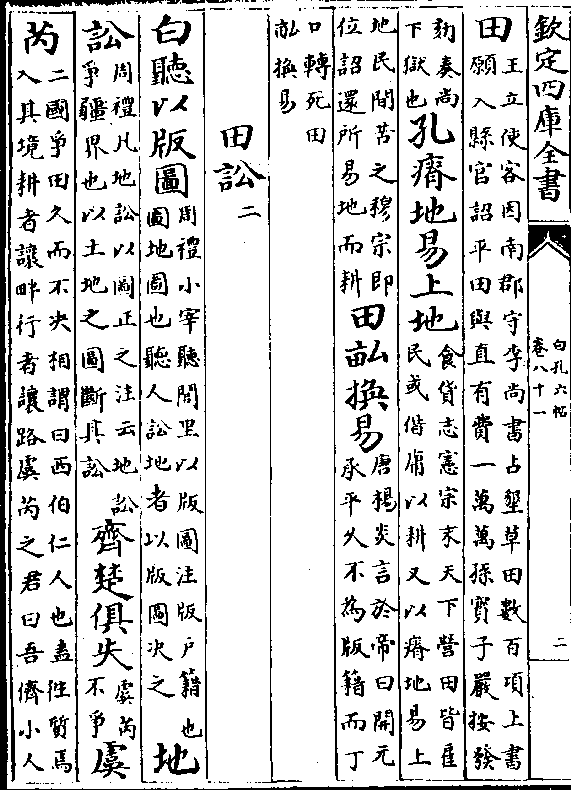 欽定四庫全書
白孔六帖
卷八十一
二
田
王立使客因南郡守李尚書占墾草田數百項上書
願入縣官詔平田與直有費一萬萬孫寳子嚴按發
劾奏尚
下獄也
孔瘠地易上地
食貨志憲宗末天下營田皆雇
民或借庸以耕又以瘠地易上
地民間苦之穆宗即
位詔還所易地而耕
田畝換易
唐楊炎言於帝曰開元
承平久不為版籍而丁
口轉死田
畝換易
田訟二
白聽以版圖
周禮小宰聽閭里以版圖注版户籍也
圖地圖也聽人訟地者以版圖决之
地
訟
周禮凡地訟以圖正之注云地訟
爭疆界也以土地之圖斷其訟
齊楚俱失
虞芮
不爭
虞
芮
二國爭田久而不决相謂曰西伯仁人也盍往質焉
入其境耕者讓畔行者讓路虞芮之君曰吾儕小人